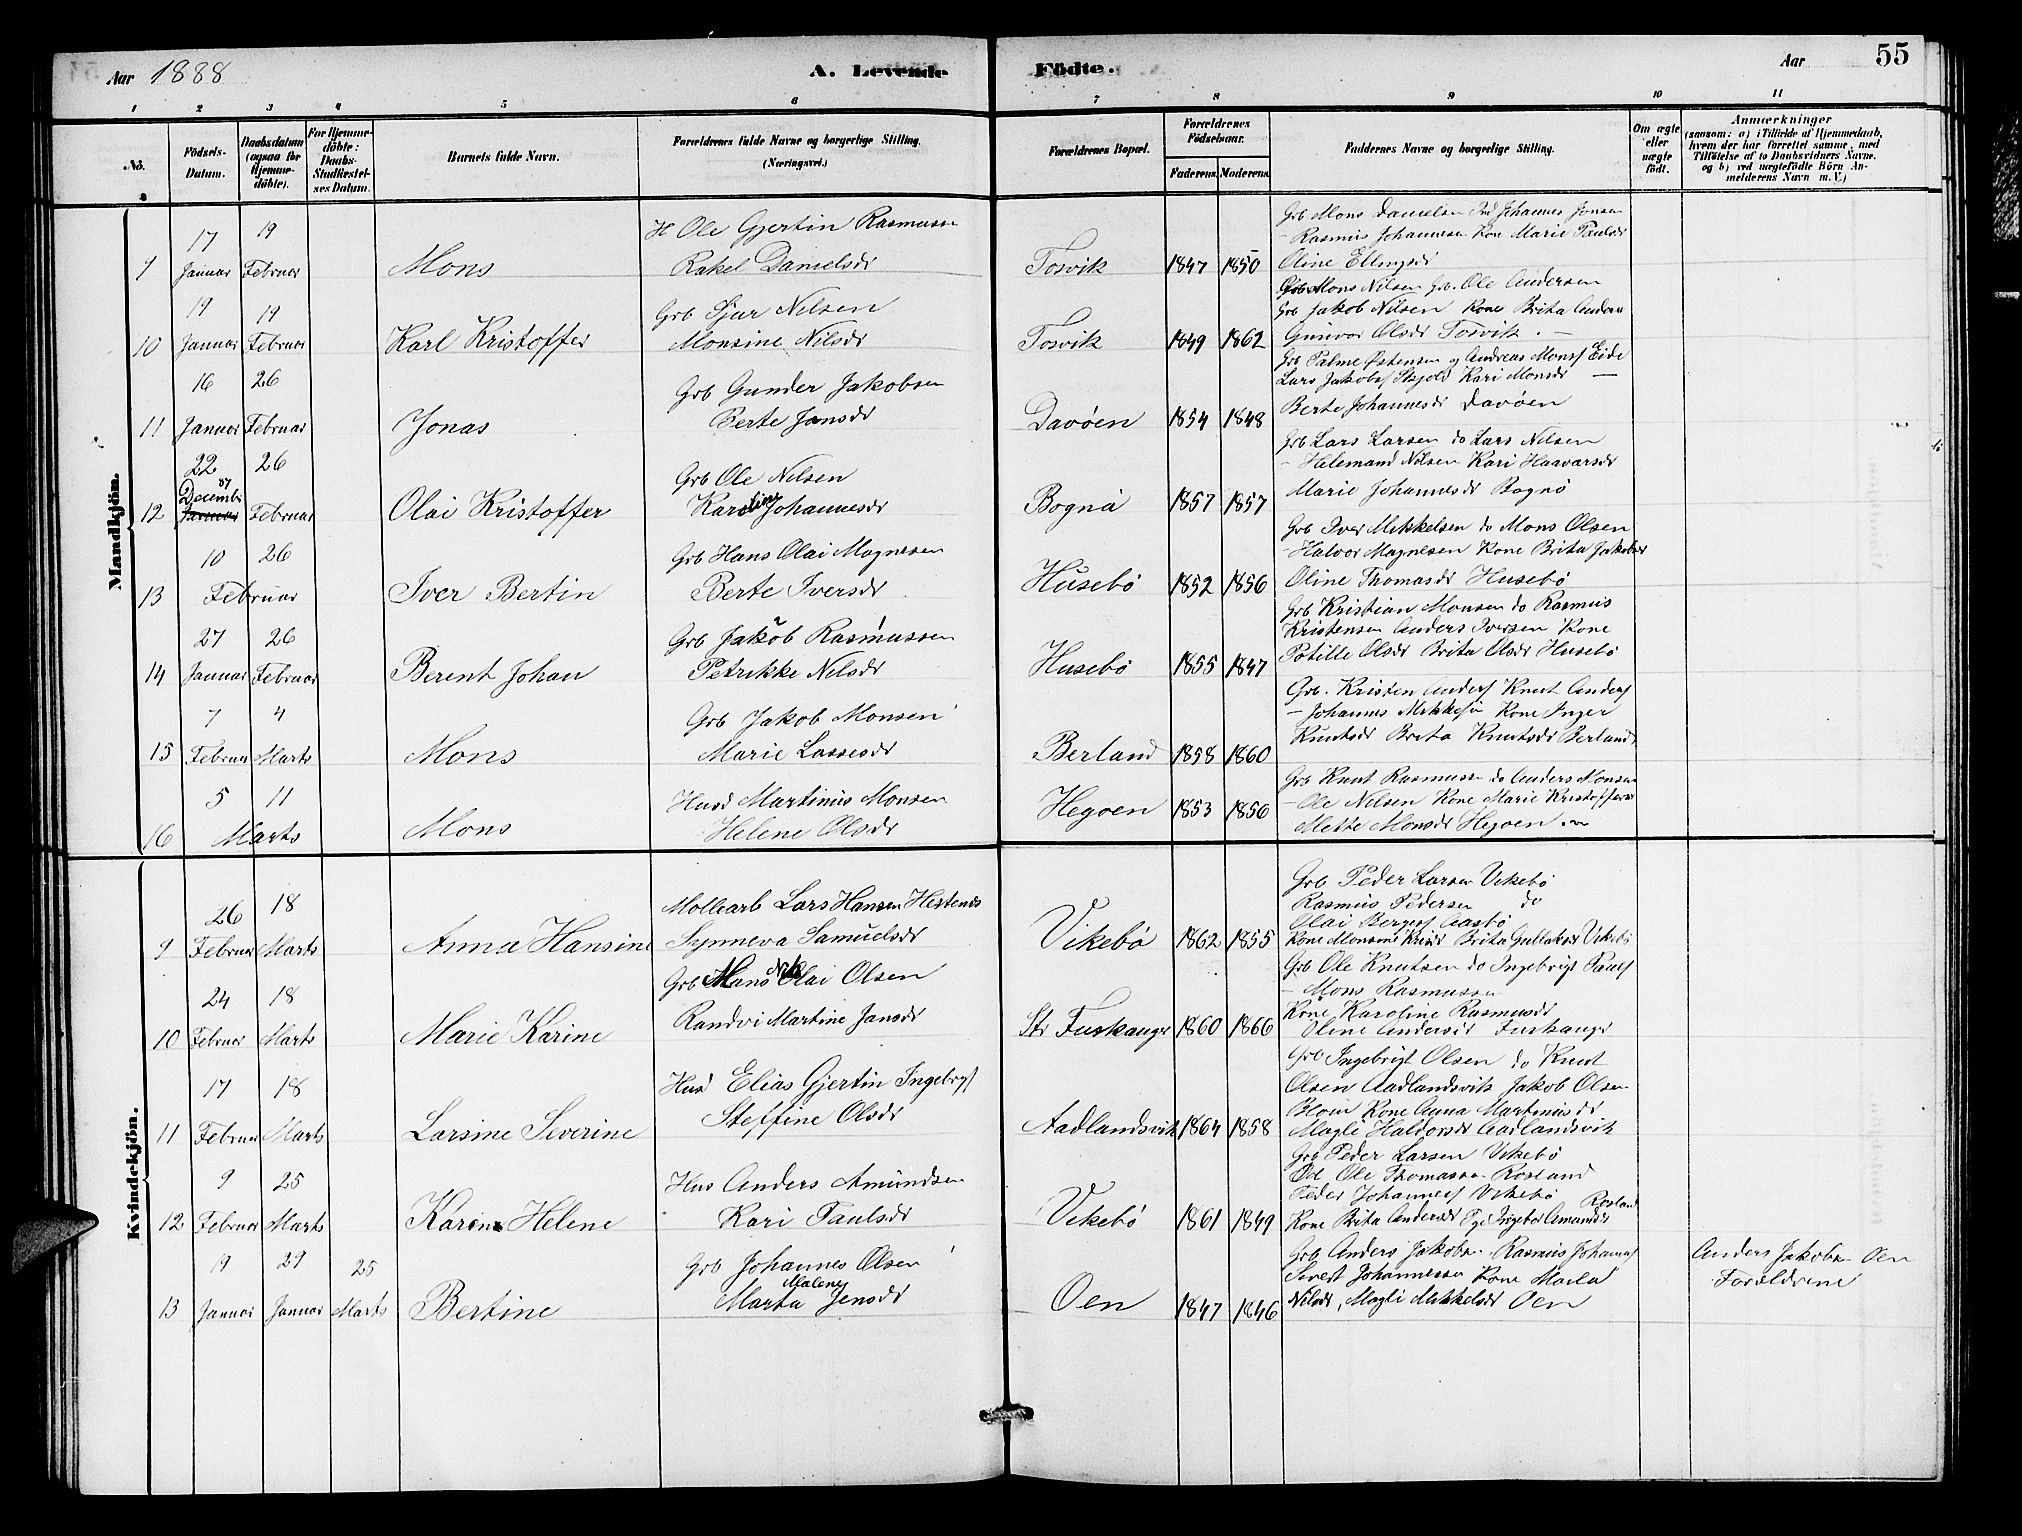 Aar 1888
A. Levende Födte.
Aar 55
1 2 3 4 5 6 7 8 9 10 11
No.
Födsels-Datum.
Daabsdatum (ogsaa for Hjemmedöbte).
For Hjemmedöbte: Daabs-Stadfæstelses Datum.
Barnets fulde Navn.
Forældrenes fulde Navne og borgerlige Stilling. (Næringsvei.)
Forældrenes Bopæl.
Forældrenes Födselsaar.
Faderens. Moderens.
Faddernes Navne og borgerlige Stilling.
Om ægte eller uægte födt.
Anmærkninger (saasom: a) i Tilfælde af Hjemmedaab, hvem der har forrettet samme, med Tilföielse af to Daabsvidners Navne. og b) ved uægtefödte Börn Anmelderens Navn m. V.)
Mandkjön.
9 17 Januar 19 Februar Mons
H Ole Gjertin Rasmussen
Rakel Danielsdr
Tosvik 1847 1850
Grb Mons Danielsen Ind Johannes Jonsen
- Rasmus Johannesen Kone Marie Paulsdr
Oline Ellingsdr
10 19 Januar 19 Februar Karl Kristoffer
Grb Sjur Nilsen
Monsine Nilsdr
Tosvik 1849 1862
Grb Mons Nilsen Grb. Ole Andersen
Grb Jakob Nilsen Kone Brita Anders
Gunvor Olsdr Tosvik . —
11 16 Januar 26 Februar Jonas
Grb Gunder Jakobsen
Berte Jonsdr
Davøen 1854 1848
Grb Palme Østensen og Andreas Mons Eide
Lars Jakobs Skjold Kari Monsdr —
Berte Johannesdr Davøen
12 22 Decembr 87 Januar 26 Februar Olai Kristoffer
Grb Ole Nilsen
Karoline Johannesdr
Bognö 1857 1857
Grb Lars Larsen do Lars Nilsen
- Helemand Nilsen Kari Haavarsdr
Marie Johannesdr Bognö
13 10 26 Februar Iver Bertin
Grb Hans Olai Magnesen
Berte Iversdr
Husebö 1852 1856
Grb Iver Mikkelsen do Mons Olsen
- Halvor Magnesen Kone Brita Jakobsdr
Oline Thomasdr Husebö
14 27 Januar 26 Februar Berent Johan
Grb Jakob Rasmussen
Petrikke Nilsdr
Husebö 1855 1847
Grb Kristian Monsen do Rasmus
Kristensen Anders Iversen Kone
Potille Olsdr Brita Olsdr Husebö
15 7 Februar 4 Marts Mons
Grb Jakob Monsen
Marie Lassesdr
Berland 1858 1860
Grb. Kristen Anders Knut Anders
- Johannes Mikkels Kone Inger
Knutsdr Brita Knutsdr Berland
16 5 11 Marts Mons
Husd Martinius Monsen
Helene Olsdr
Hegoen 1853 1856
Grb Knut Rasmussen do Anders Monsen
- Ole Nilsen Kone Marie Kristoffersdr
Mette Monsdr Hegoen
Kvindekjön.
9 26 Februar 18 Marts Anna Hansine
Mollearb Lars Hansen Hestenes
Synneva Samuelsdr
Vikebö 1862 1855
Grb Peder Larsen Vikebö
Rasmus Pedersen do
Olai Berges Aasbö
Kone Monsine Krisdr Brita Gullaksdr Vikebö
10 24 Februar 18 Marts Marie Karine
Grb Mans Nik Olai Olsen
Randvi Martine Jansdr
St Fuskanger 1860 1866
Grb Ole Knutsen do Ingebrigt Pauls
- Mons Rasmussen
Kone Karoline Rasmusdr
Oline Andersdr Fuskangr
11 17 Februar 18 Marts Larsine Severine
Husd Elias Gjertin Ingebrgt
Steffine Olsdr
Aadlandsvik 1864 1858
Grb Ingebrigt Olsen do Knut
Olsen Aadlandsvik Jakob Olsen
Blom Kone Anna Martinusdr
Magli Haldorsdr Aadlandsvik
12 9 Februar 25 Marts Karine Helene
Hus Anders Amundsen
Kari Paulsdr
Vikebö 1861 1849
Grb Peder Larsen Vikebö
Ød Ole Thomassen Rosland
Peder Johannes Vikebö
Kone Brita Andersdr Pge Ingebor Amundsdr Rosland
13 9 Januar 29 Januar 25 Marts Bertine
Grb Johannes Olsen
Marta Malene Jensdr
Oen 1847 1846
Grb Anders Jakobsen Rasmus Johannes
Sivert Johannessen Kone Marta
Nilsdr, Magli Mikkelsdr Oen
Anders Jakobsen Oen
Forældrene